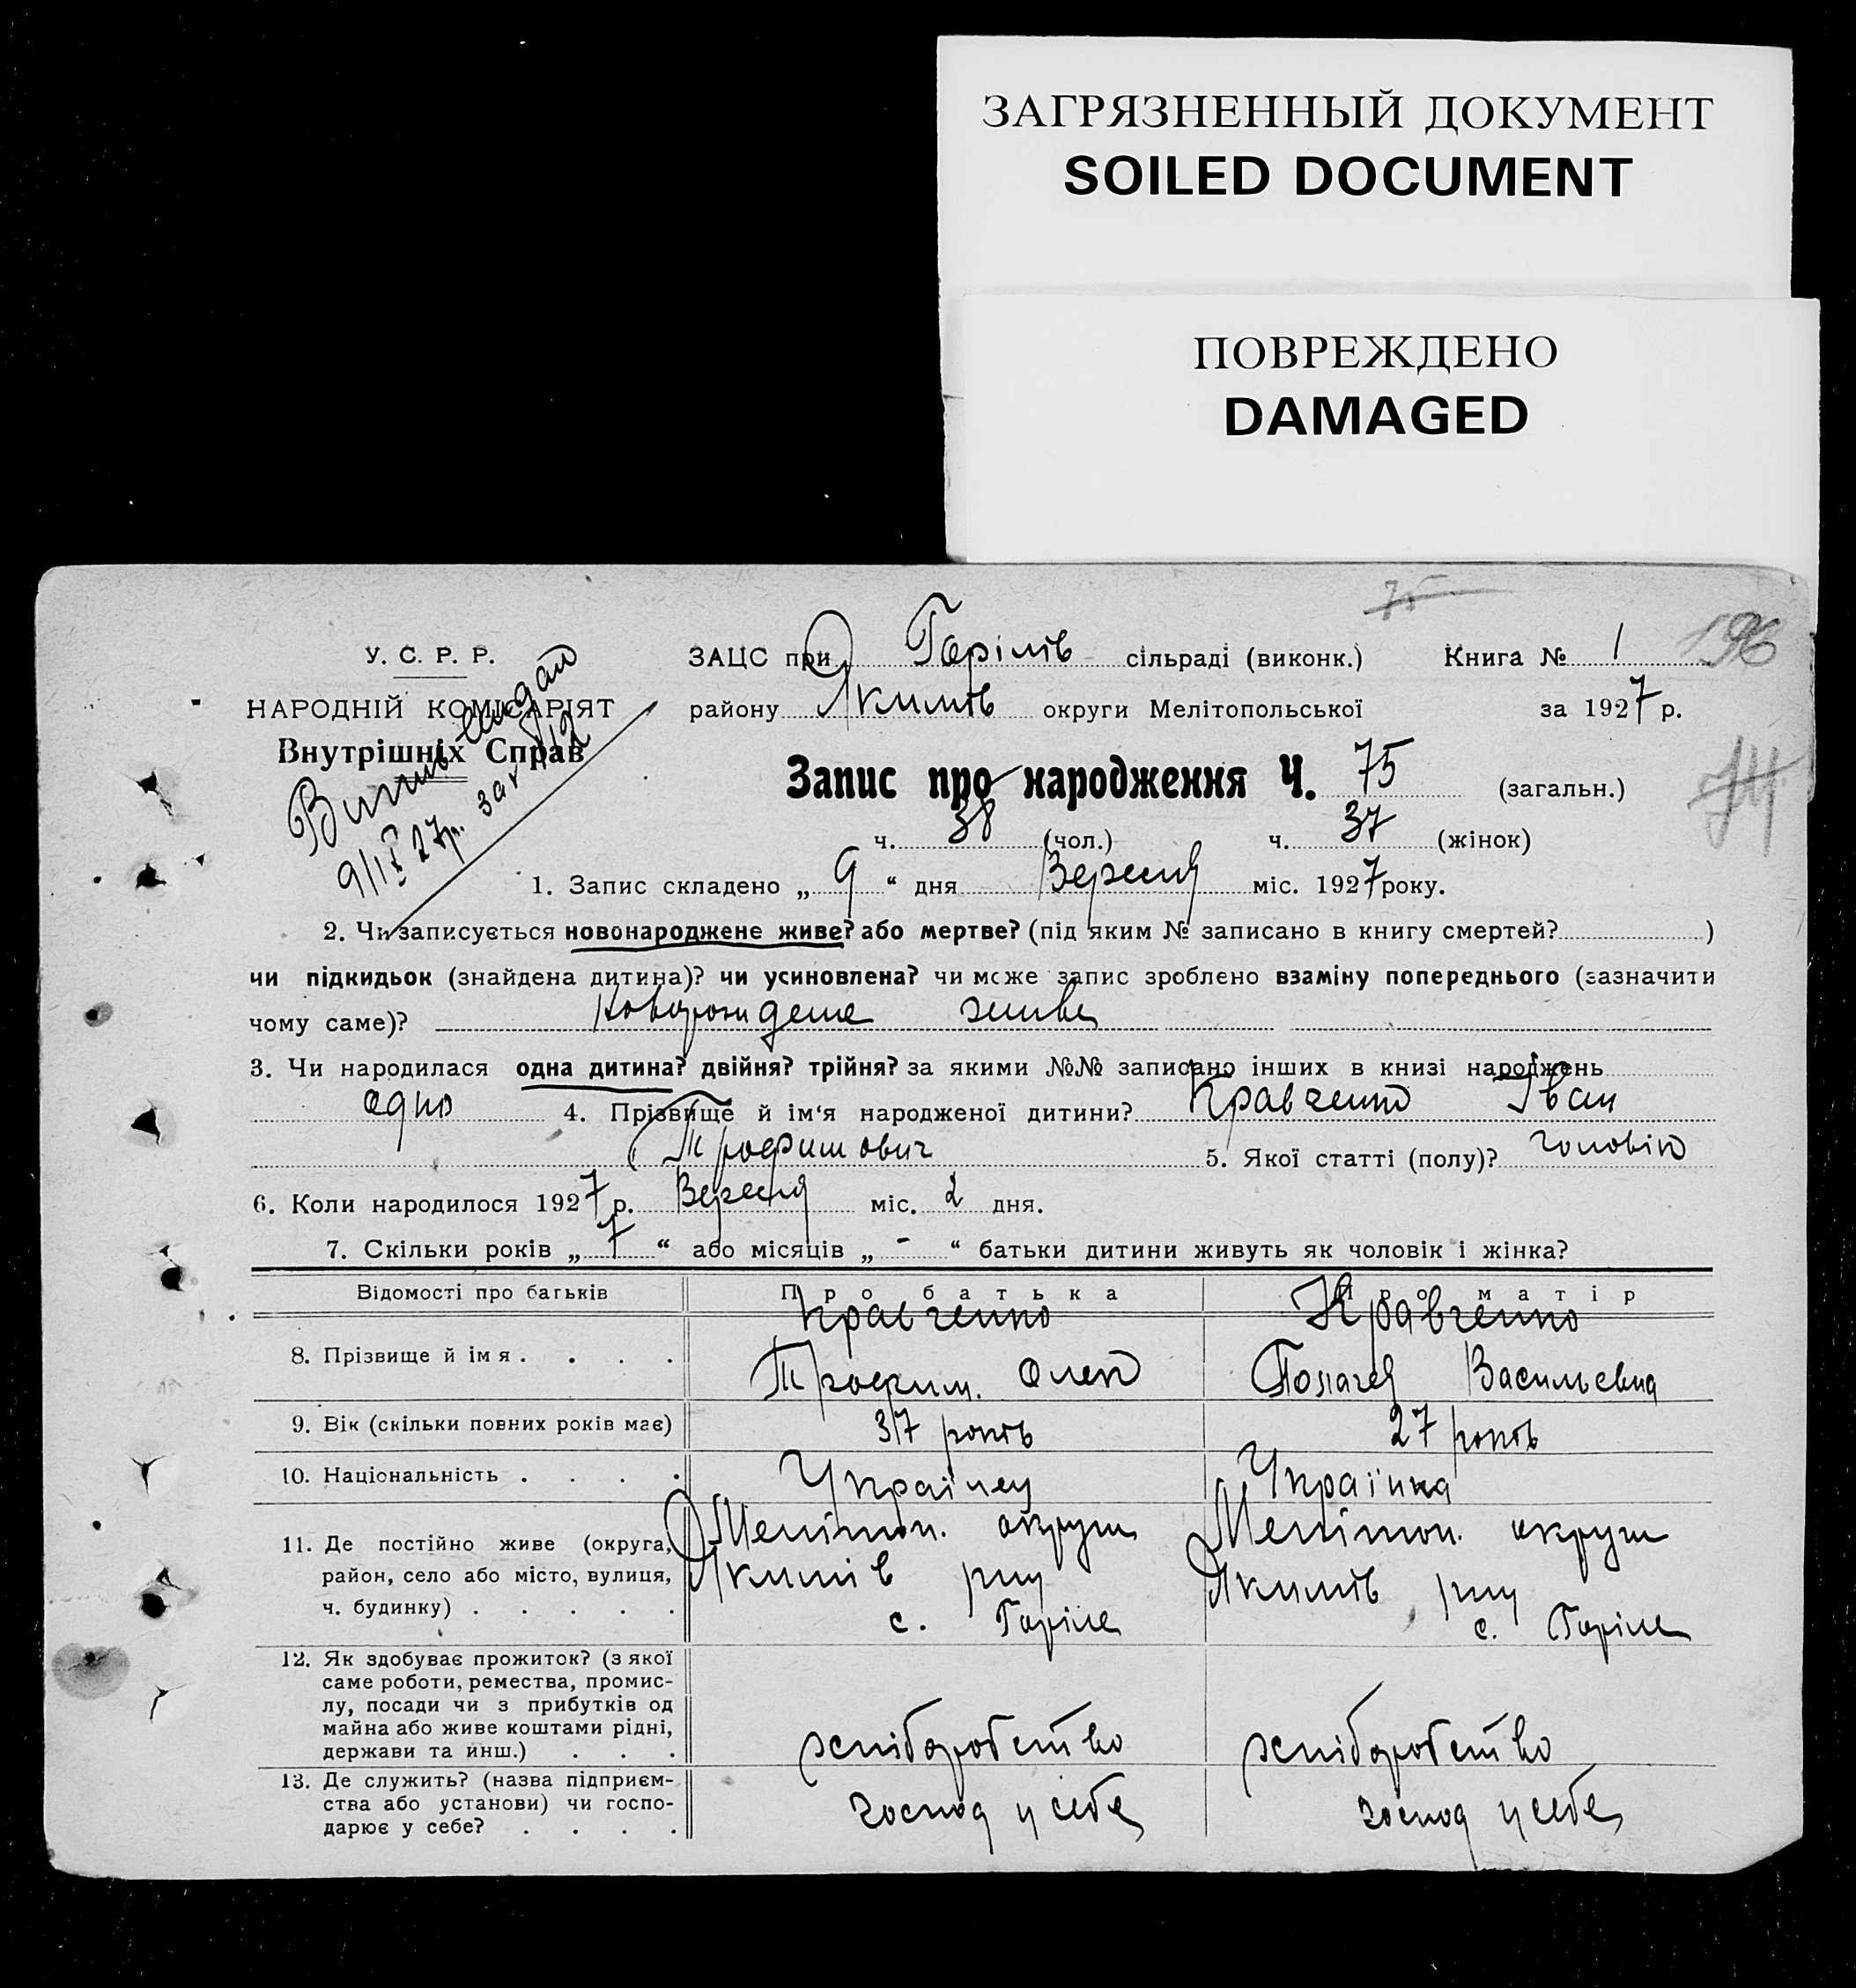 ЗАГРЯЗНЕННЫЙ ДОКУМЕНТ
SOILED DOCUMENT
ПОВРЕЖДЕНО
DAMAGED
75
У. С. Р. Р.
ЗАЦС при Горілів сільраді (виконк.) Книга № 1 196
НАРОДНІЙ КОМІСАРІЯТ
району Якимів округи Мелітопольської за 1927 р.
Внутрішніх Справ
Запис про народження Ч. 75 (загальн.)
ч. 38 (чол.) ч. 37 (жінок)
1. Запис складено „ 9 “ дня Вересня міс. 1927 року.
2. Чи записується новонароджене живе? або мертве? (під яким № записано в книгу смертей? )
чи підкидьок (знайдена дитина)? чи усиновлена? чи може запис зроблено взаміну попереднього (зазначити
чому саме)? живе
3. Чи народилася одна дитина? двійня? трійня? за якими №№ записано інших в книзі народжень
одно 4. Прізвище й ім‘я народженої дитини? Кравченко Іван
Трофимович 5. Якої статті (полу)? чоловік
6. Коли народилося 1927 р. Вересня міс. 2 дня.
7. Скільки років „ 7 “ або місяців „ - “ батьки дитини живуть як чоловік і жінка?
Відомості про батьків Про батька Про матір
Кравченко Кравченко
8. Прізвище й імя . . . . Трофим. Олек Васильевна
9. Вік (скільки повних років має) 37 років 27 років
10. Національність . . . . Українец Українка
11. Де постійно живе (округа, Мелітоп. округи Мелітоп. округи
район, село або місто, вулиця, Якимів рну Якимів рну
ч. будинку) . . . . . с. Горіле с. Горіле
12. Як здобуває прожиток? (з якої
саме роботи, ремества, промис-
лу, посади чи з прибутків од
майна або живе коштами рідні,
держави та инш.) . . . хліборобство хліборобство
13. Де служить? (назва підприєм-
ства або установи) чи госпо- господ у себе господ у себе
дарює у себе? . . . .